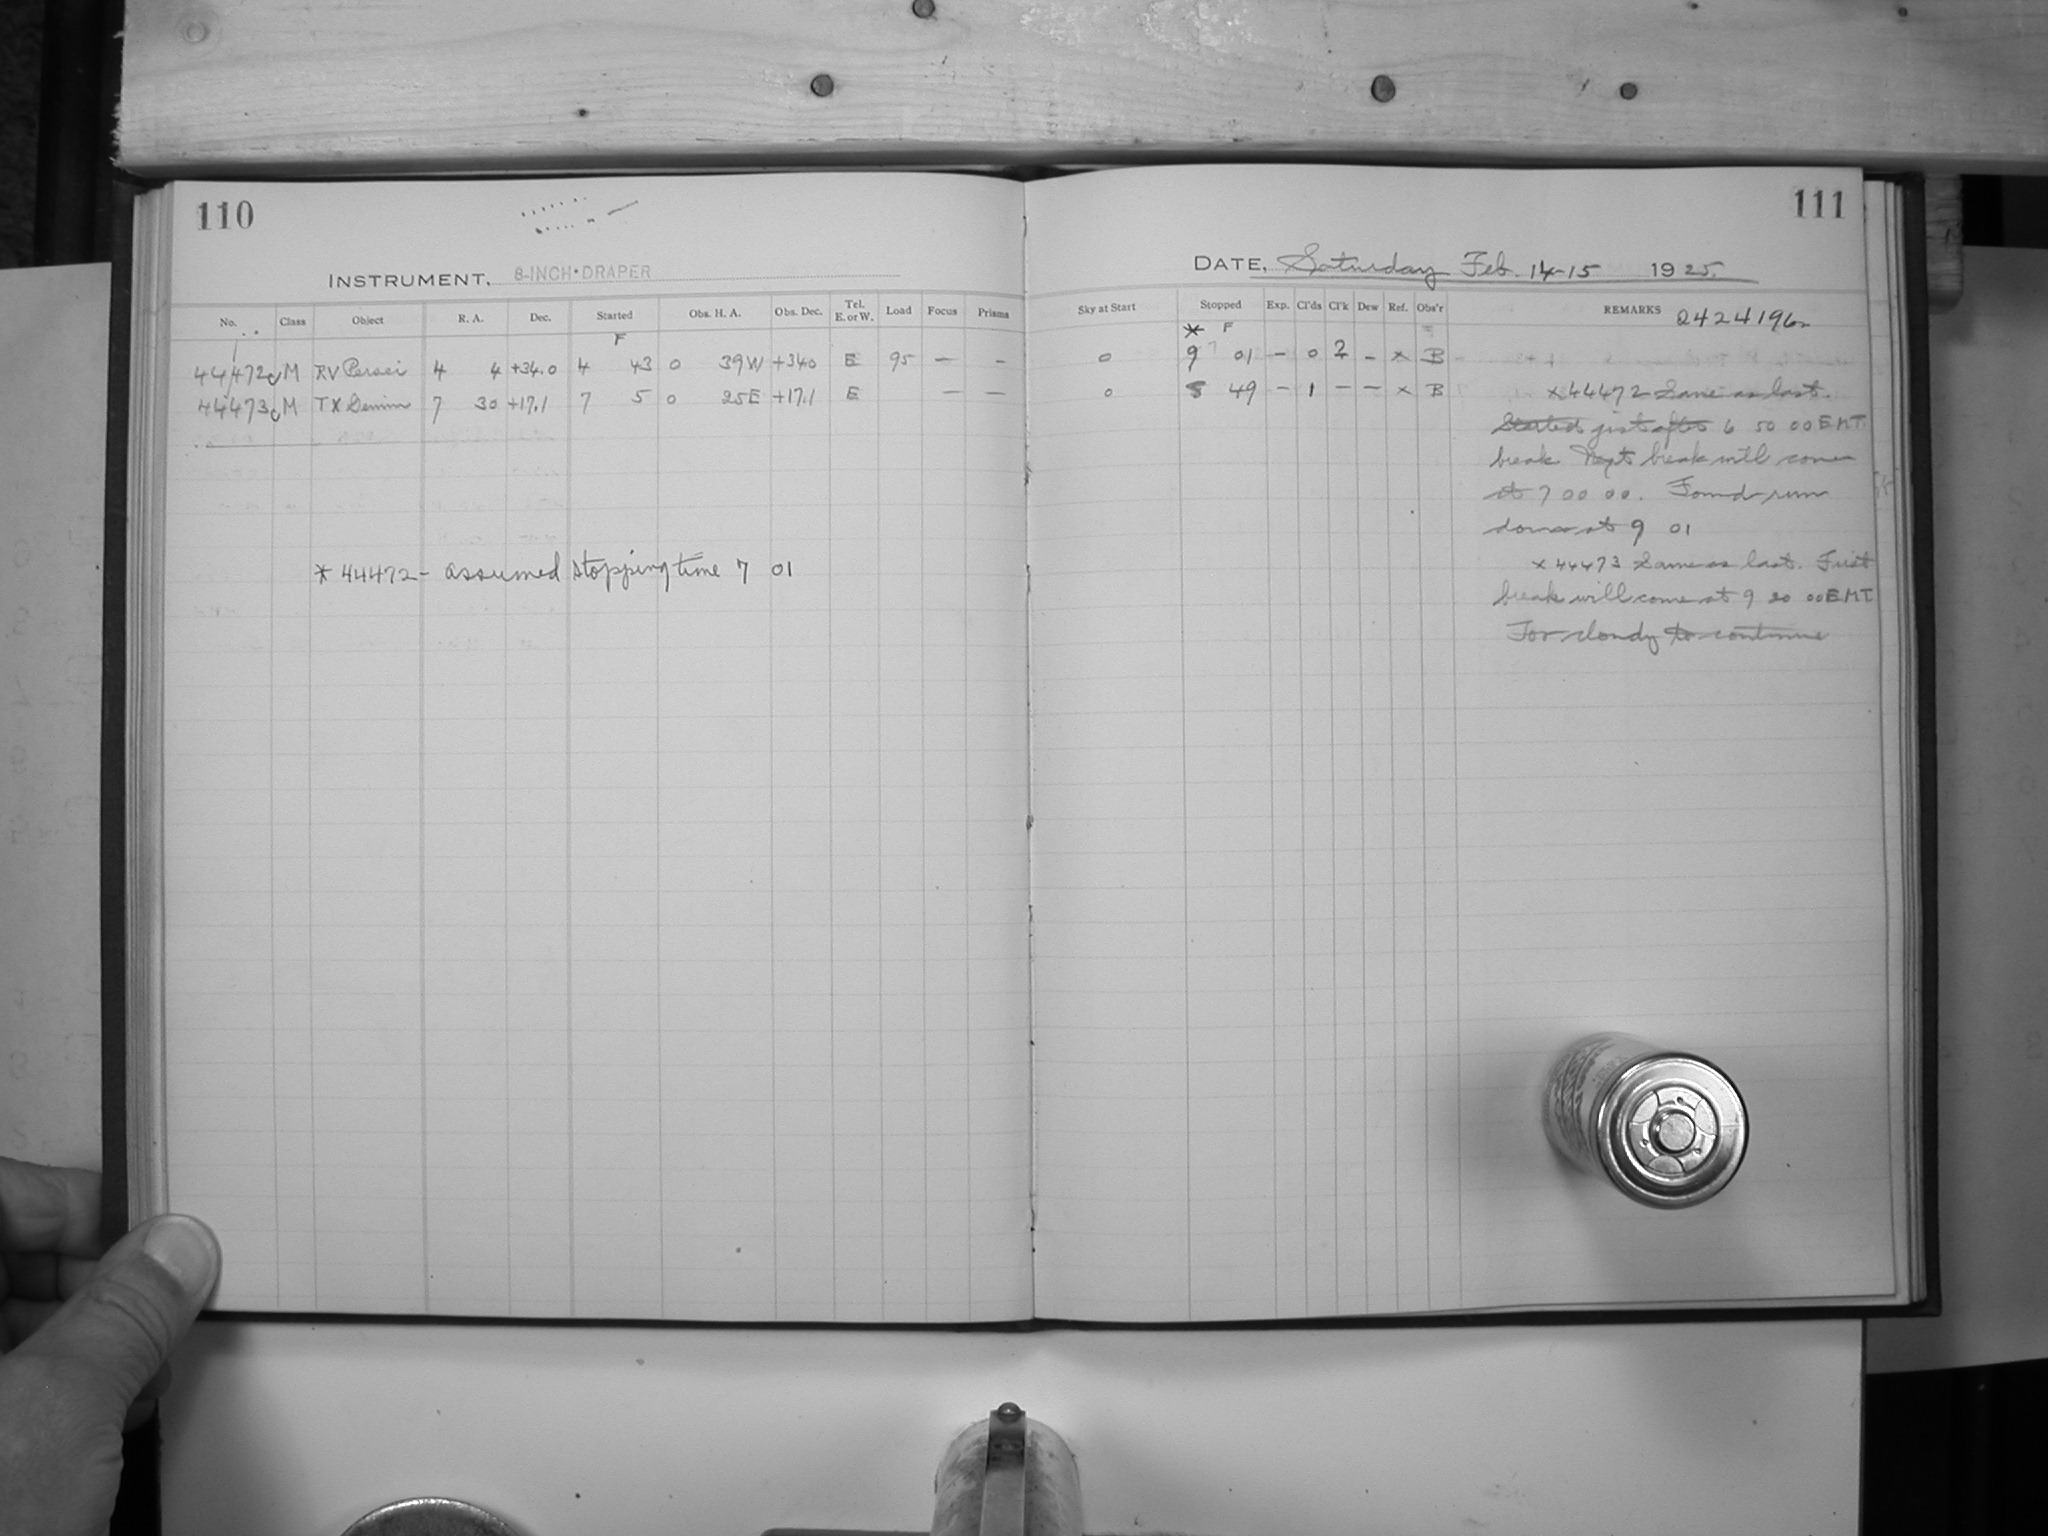 110
INSTRUMENT. 8-INCH DRAPER
No. Class Object R. A. Dec. Started Obs. H. A. Obs. Dec. Tel. E. or W. Load Focus Prisms
F
44472 M RV Persei 4 4 +34.0 4 43 0 39W +34.0 E 95 — —
44473 M TX Gemin 7 30 +17.1 7 5 0 25E +17.1 E — —
* 44472 - assumed stopping time 7 01
111
DATE, Saturday Feb. 14-15 1925.
Sky at Start Stopped Exp. Cl'ds Cl'k Dew Ref. Obs'r REMARKS 2424196
* F
0 9 01 — 0 2 — x B
0 49 — 1 — — x B
x 44472 Same as last.
Started just after 6 50 00 EMT.
break Next break will come
at 7 00 00. Found run
down at 9 01
x 44473 Same as last. First
break will come at 9 20 00 EMT
Too cloudy to continue